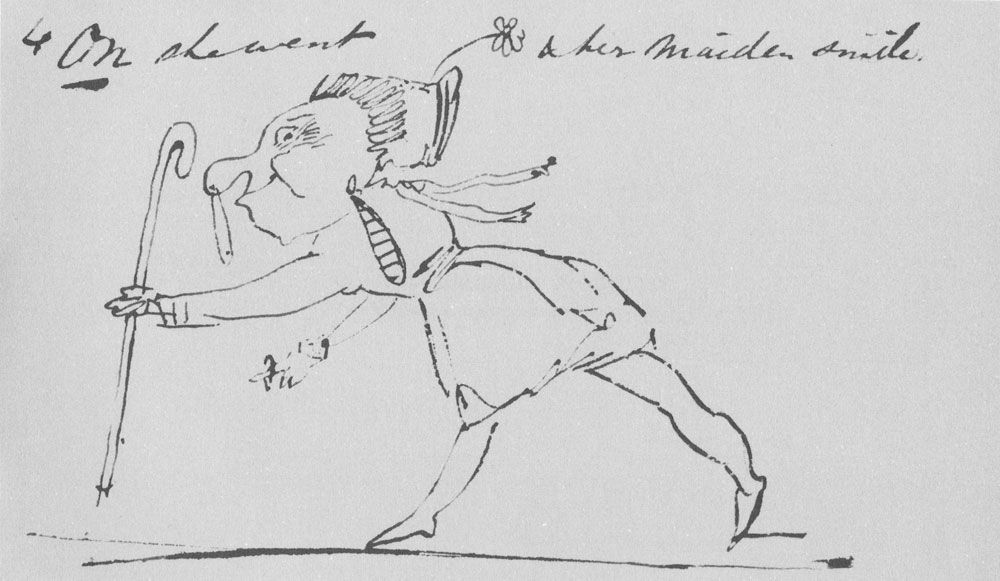 4 On she went & her Maiden smile.